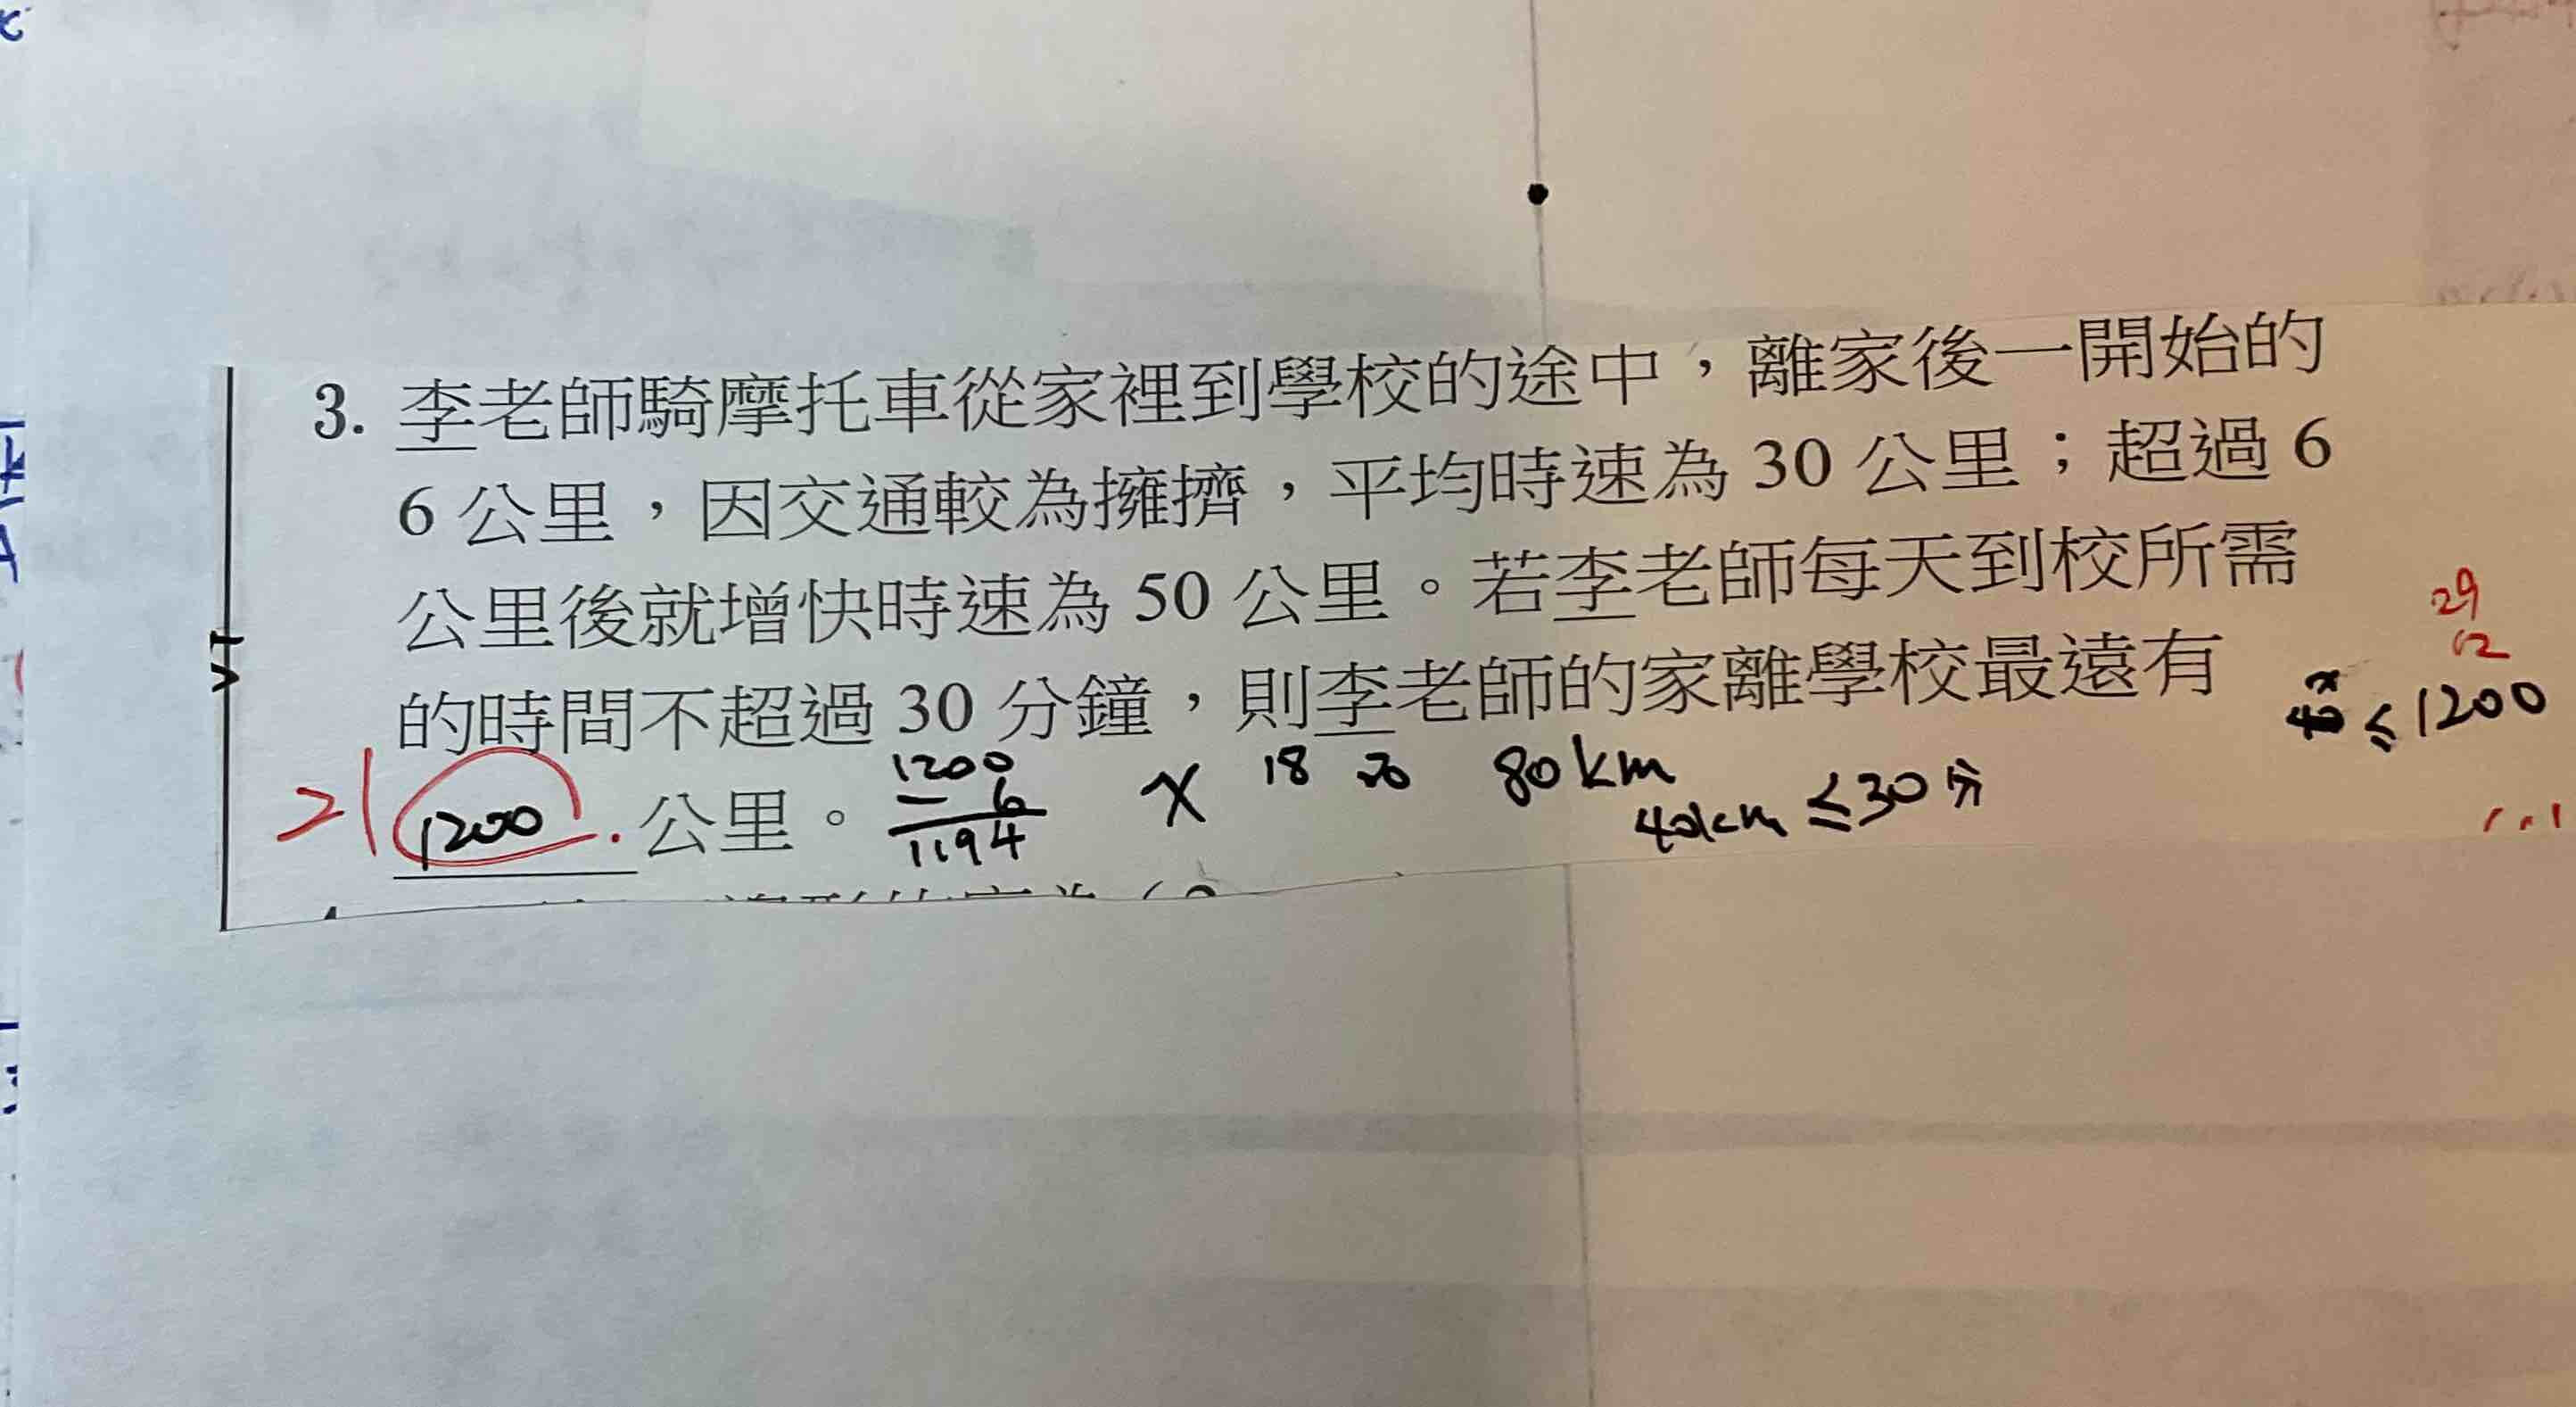 3. 李老師騎摩托車從家裡到學校的途中，離家後一開始的
6 公里，因交通較為擁擠，平均時速為 30 公里；超過 6
公里後就增快時速為 50 公里。若李老師每天到校所需
29
12
的時間不超過 30 分鐘，則李老師的家離學校最遠有
≤ 1200
21 1200 公里。
1200
- 6
1194
x 18 80km
40km ≤ 30分